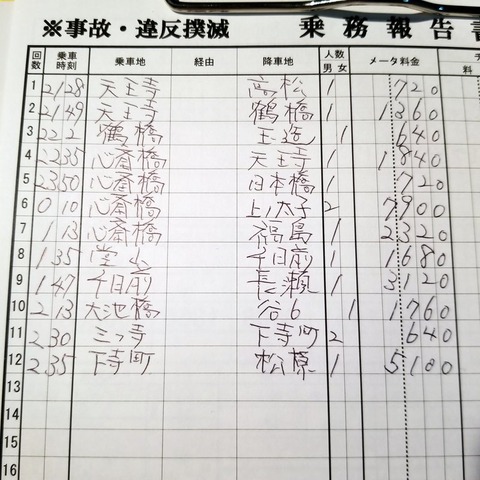 ※事故・違反撲滅 乗務報告書
回数 乗車時刻 乗車地 経由 降車地 人数 男 女 メータ料金 料
1 21 28 天王寺 高松 1 720
2 21 49 天王寺 鶴橋 1 1360
3 22 2 鶴橋 玉造 1 640
4 22 35 心斎橋 天王寺 1 1840
5 23 50 心斎橋 日本橋 1 720
6 0 10 心斎橋 上ノ太子 2 7900
7 1 13 心斎橋 福島 1 2320
8 1 35 堂山 千日前 1 1680
9 1 47 千日前 長瀬 1 3120
10 2 13 大池橋 谷6 1 1760
11 2 30 三ッ寺 下寺町 2 640
12 2 35 下寺町 松原 1 5100
13
14
15
16